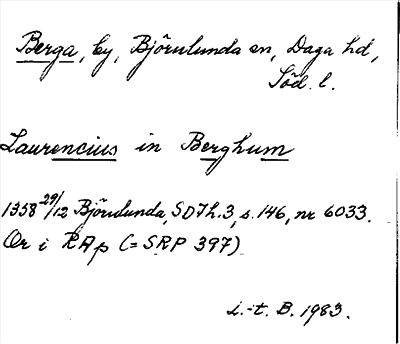 Berga, by, Björnlunda sn, Daga hd,
Söd. l.
Laurencius in Berghum
1358 29/12 Björnlunda, SD 7h.3, s. 146, nr 6033.
Or i RAp (= SRP 397)
i.-t. B. 1983.